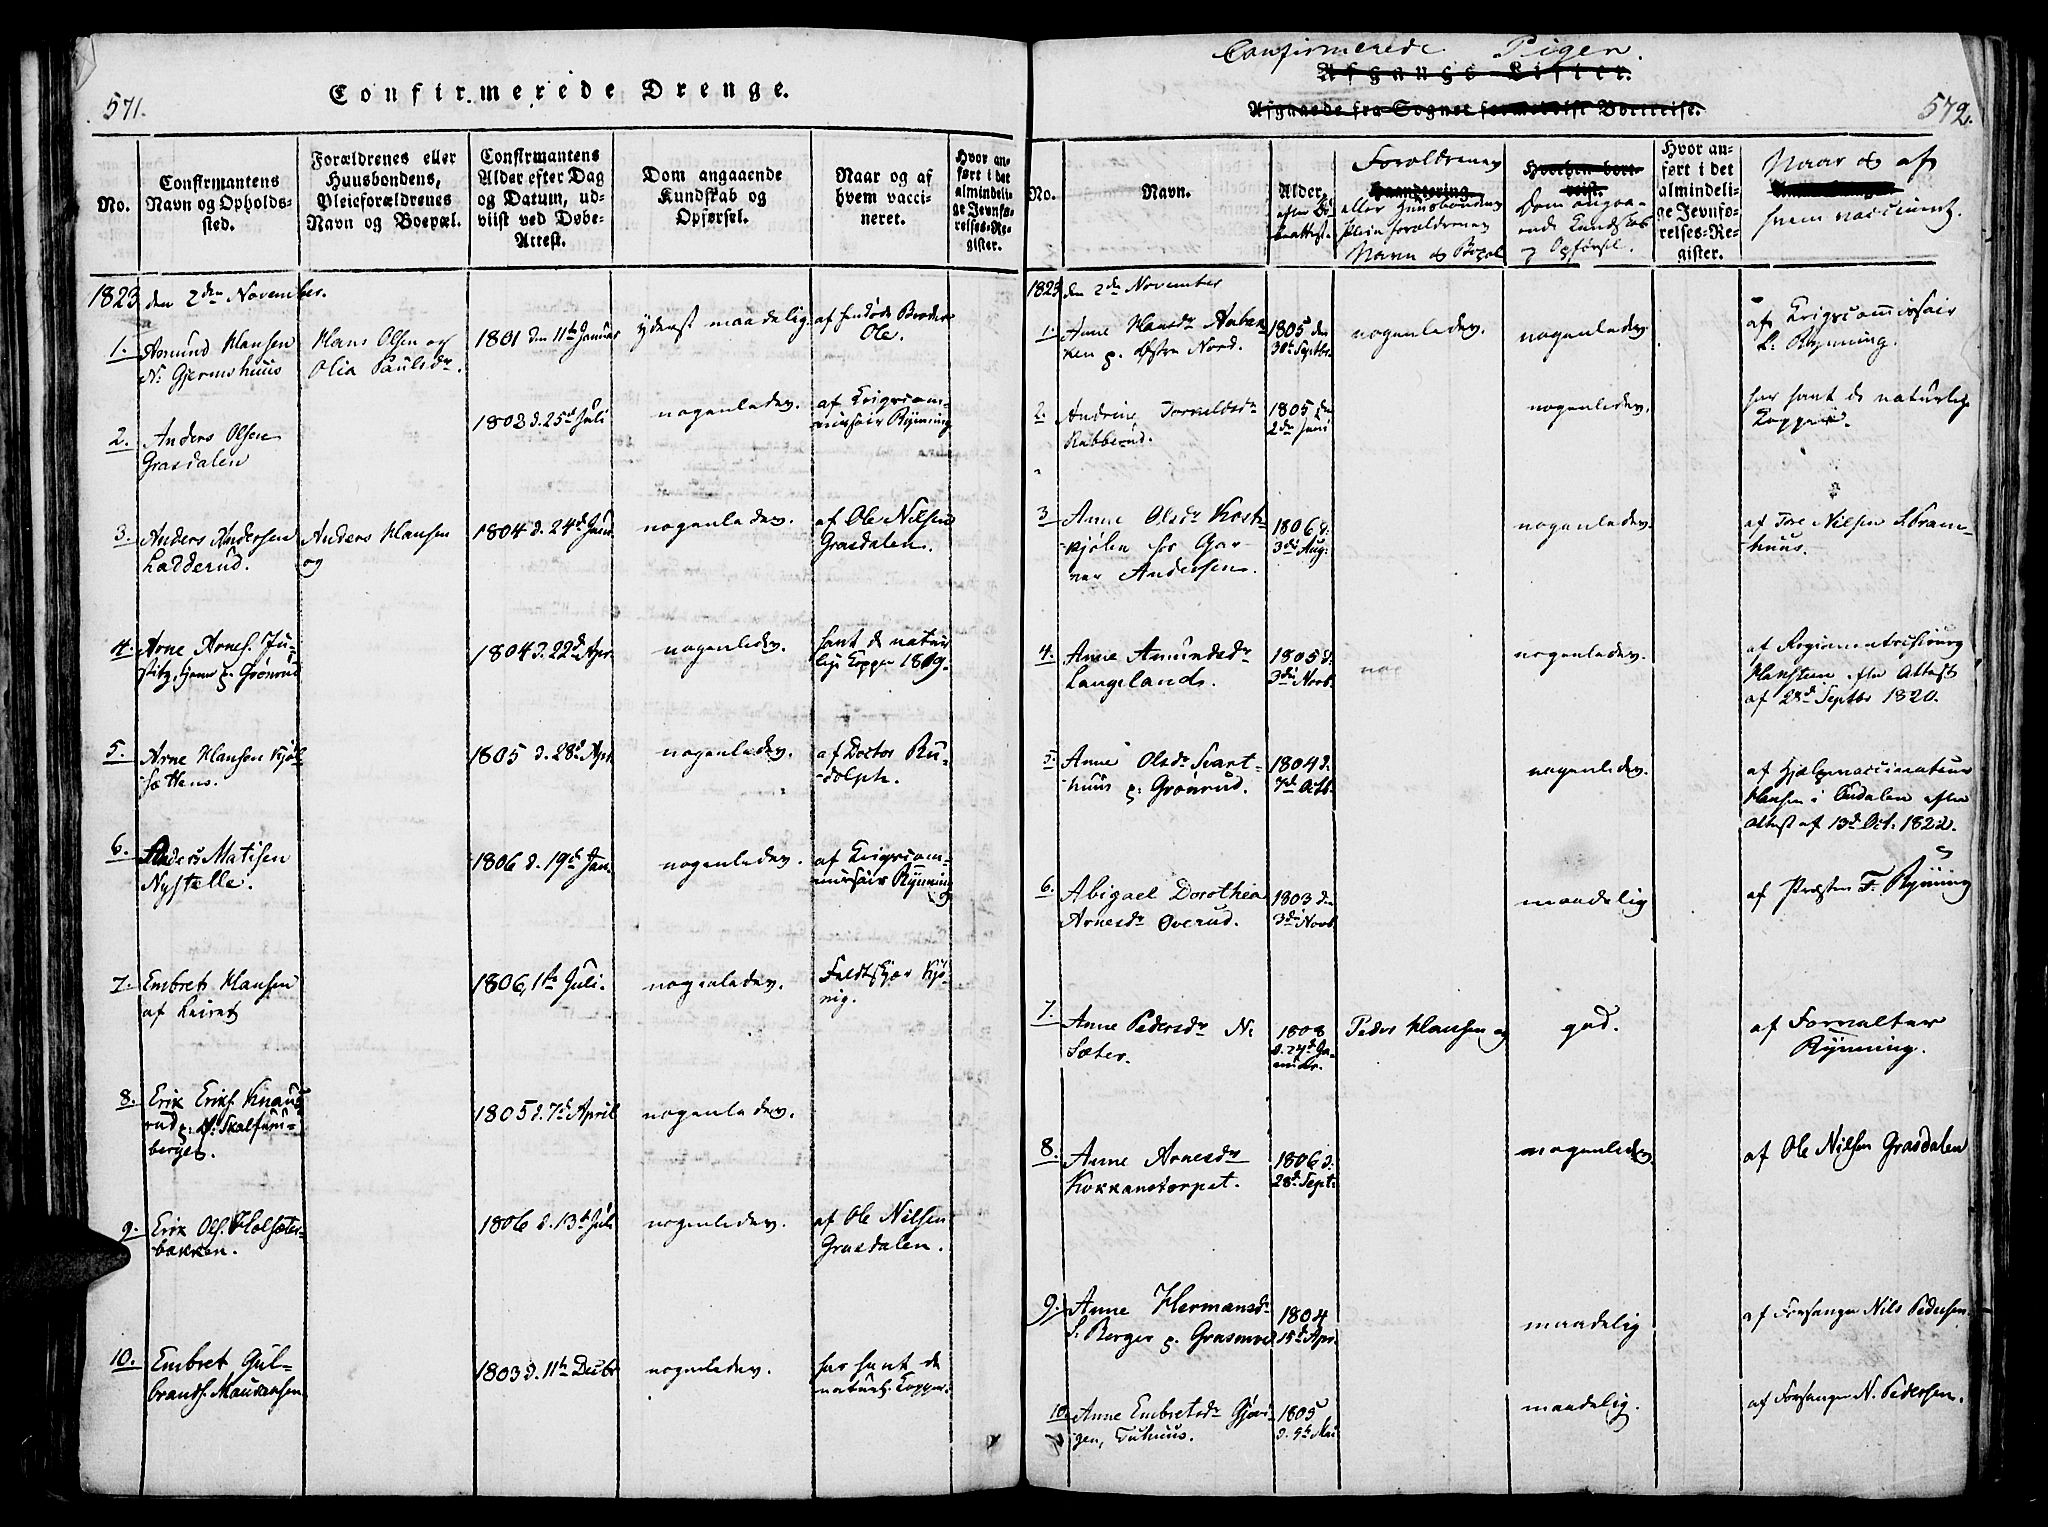 571.
Confirmerede Drenge.
No.
Confirmantens
Navn og Opholds-
sted.
Forældrenes eller
Huusbondens,
Pleieforældrenes
Navn og Boepæl.
Confirmantens
Alder efter Dag
og Datum, ud-
viist ved Døbe-
Attest.
Dom angaaende
Kundskab og
Opførsel.
Naar og af
hvem vacci-
neret.
Hvor an-
ført i det
almindeli-
ge Jevnfø-
relses-Re-
gister.
1823 den 2den November.
1. Amund Hansen
N: Gjermshuus
Hans Olsen og
Olia Paulsdr.
1801 den 11te Januar
yderst maadelig.
af hendøde Broder
Ole.
2. Anders Olsen
Grasdalen
1803 d. 25d Juli
nogenledes.
af Krigscom-
missair Rynning
3. Anders Andersen
Ladderud.
Anders Hansen
og
1804 d. 24d Juni
nogenledes.
af Ole Nilsen
Grasdalen.
4. Arne Arnes. Ju-
stitz, hjemme p. Grönrud
1804 d. 22d Apr.
nogenledes.
havt de natur-
lige Kopper 1809.
5. Arne Hansen Kjöl-
sættens.
1805 d. 28d Apr.
nogenledes.
af Doctor Ru-
dolph.
6. Anders Matisen
Nystelle.
1806 d. 19d Jan.
nogenledes.
af Krigscom-
missair Rynning
7. Embret Hansen
af Leiret
1806, 1te Juli.
nogenledes.
Feldtskjær Kjö-
nig.
8. Erik Eriks. Knaus-
rud p: N: Skalfum-
berget.
1805 d. 7d April
nogenledes.
9. Erik Ols. Holsæter-
bakken.
1806 d. 13d Juli
nogenledes.
af Ole Nilsen
Grasdalen.
10. Embret Gul-
brands. Maukaasen
1803 d. 11te Decbr
nogenledes.
har havt de
naturl. Kopper.
Confirmerede Piger.
Afgangs-Lister.
Afgaaede fra Sognet formedelst Bortreise.
572.
No.
Navn.
Alder,
efter Dø-
beattest.
Forældrenes
Haandtering
eller Huusbondens
Pleieforældrenes
Navn & Bopæl
Hvorhen bort-
reist.
Dom angaa-
ende Kundskab
og Opførsel.
Hvor an-
ført i det
almindeli-
ge Jevnfø-
relses-Re-
gister.
Naar & af
hvem vaccineret.
1823 den 2den November
1. Anne Hansdr Aaben-
ken p. Østre Nord.
1805 den
30te Septbr.
nogenledes.
nogenledes.
af Krigscommissair
L: Rynning.
2. Andrine Torvaldsdr
Rabberud.
1805 den
2den Juni
nogenledes.
har havt de naturlige
Kopper.
3 Anne Olsdr Kost-
kjölen hos Gun-
ner Andersen.
1806 d.
3die Aug:
nogenledes.
af Tore Nilsen S: Fram-
huus.
4. Anne Amundsdr
Langelands.
1805 d.
3die Novb.
nog
nogenledes.
af Regimentschirurg
Hansteen efter Attest
af 28d Septbr 1820.
5. Anne Olsdr Svart-
huus p: Grönrud.
1804 d.
7d Octb.
nogenledes.
af Hjælpevaccinateur
Hansen i Oudalen efter
Attest af 13d Oct. 1822.
6. Abigael Dorothea
Arnesdr Overud.
1803 den
3die Novb
maadelig
af Præsten F. Rynning
7. Anne Pedersdr N:
Sæter.
1808
d. 24d Ja-
nuar.
Peder Hansen og
god.
af Forvalter
Rynning.
8. Anne Arnesdr
Kokkanstorpet.
1806 d.
28d Sept:
nogenledes.
af Ole Nilsen Grasdalen
9. Anne Hermansdr
S. Berger p: Grasmoe
1804
15d Apr.
maadelig
af Forsanger Nils Pedersen.
10. Anne Embretsdr Gjövi-
gen, Tuhuus.
1805
d. 9te Mai
maadelig.
af Forsanger N. Pedersen.